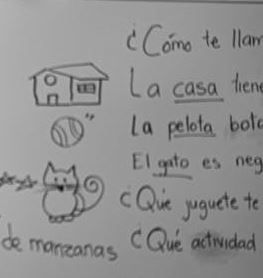 ¿Cómo te
La casa
La pelota
El gato es
¿Qué juguete te
de manzanas ¿Qué actividad